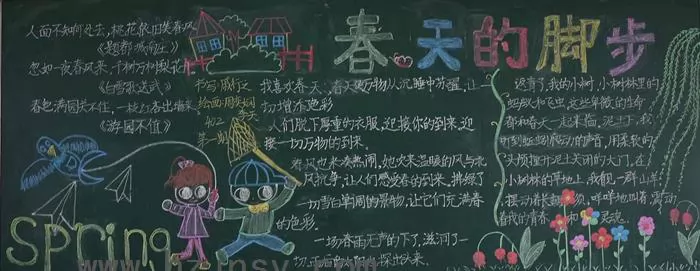 春天的脚步
人面不知何处去,桃花依旧笑春风
《题都城南庄》
忽如一夜春风来,千树万树梨花开
《白雪歌送武》
春色满园关不住,一枝红杏出墙来
《游园不值》
书写:
绘画:
402
第一期
我喜欢春天,春天使万物从沉睡中苏醒,让一
切增添色彩
人们脱下厚重的衣服,迎接你的到来,迎
接一切万物的到来.
春风也来凑热闹,她吹来温暖的风与北
风抗争,让人们感受春的到来,拼绿了
一切雪白单调的景物,让它们充满春
的色彩.
一场春雨无声的下了,滋润了一
切,
还有了,我的小树,小树林里的
蚂蚁和飞虫,这些卑微的生命
都和春天一起来临,泥土下,我
听到蚯蚓 动的声音,用柔软的
头颅撞开泥土关闭的大门,在
小树林的草地上,我靓一群山羊
摆动着长 须,咩咩地叫着,震动
着我的青春 和 灵魂.
Spring